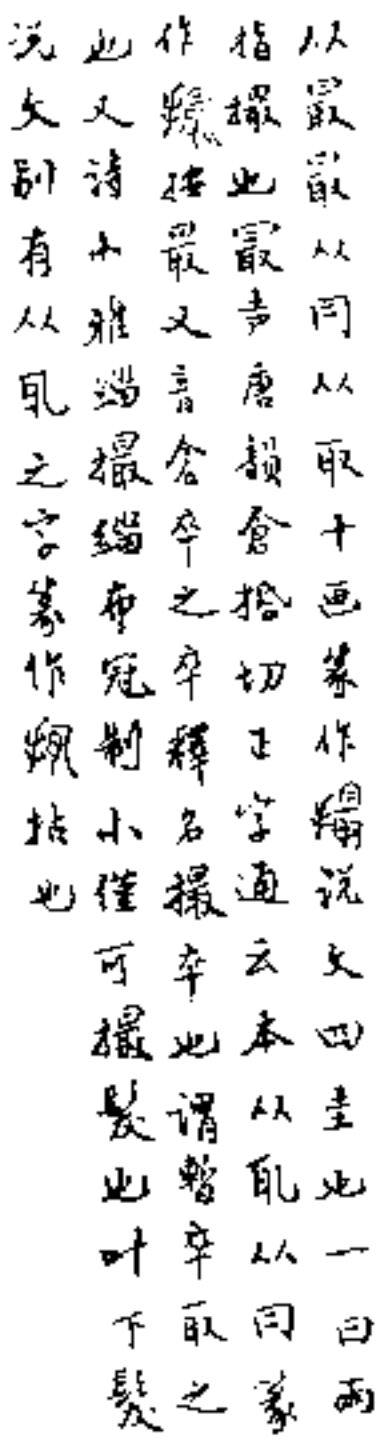 从最最从冃从取十画篆作說文四圭也一曰兩
指撮也最声唐韻倉括切正字通云本从丮从冃篆
作按最又音倉卒之卒釋名撮卒也謂暫卒取之
也又詩小雅緇撮緇布冠制小僅可撮髮也叶下髮
说文别有从丮之字篆作拈也